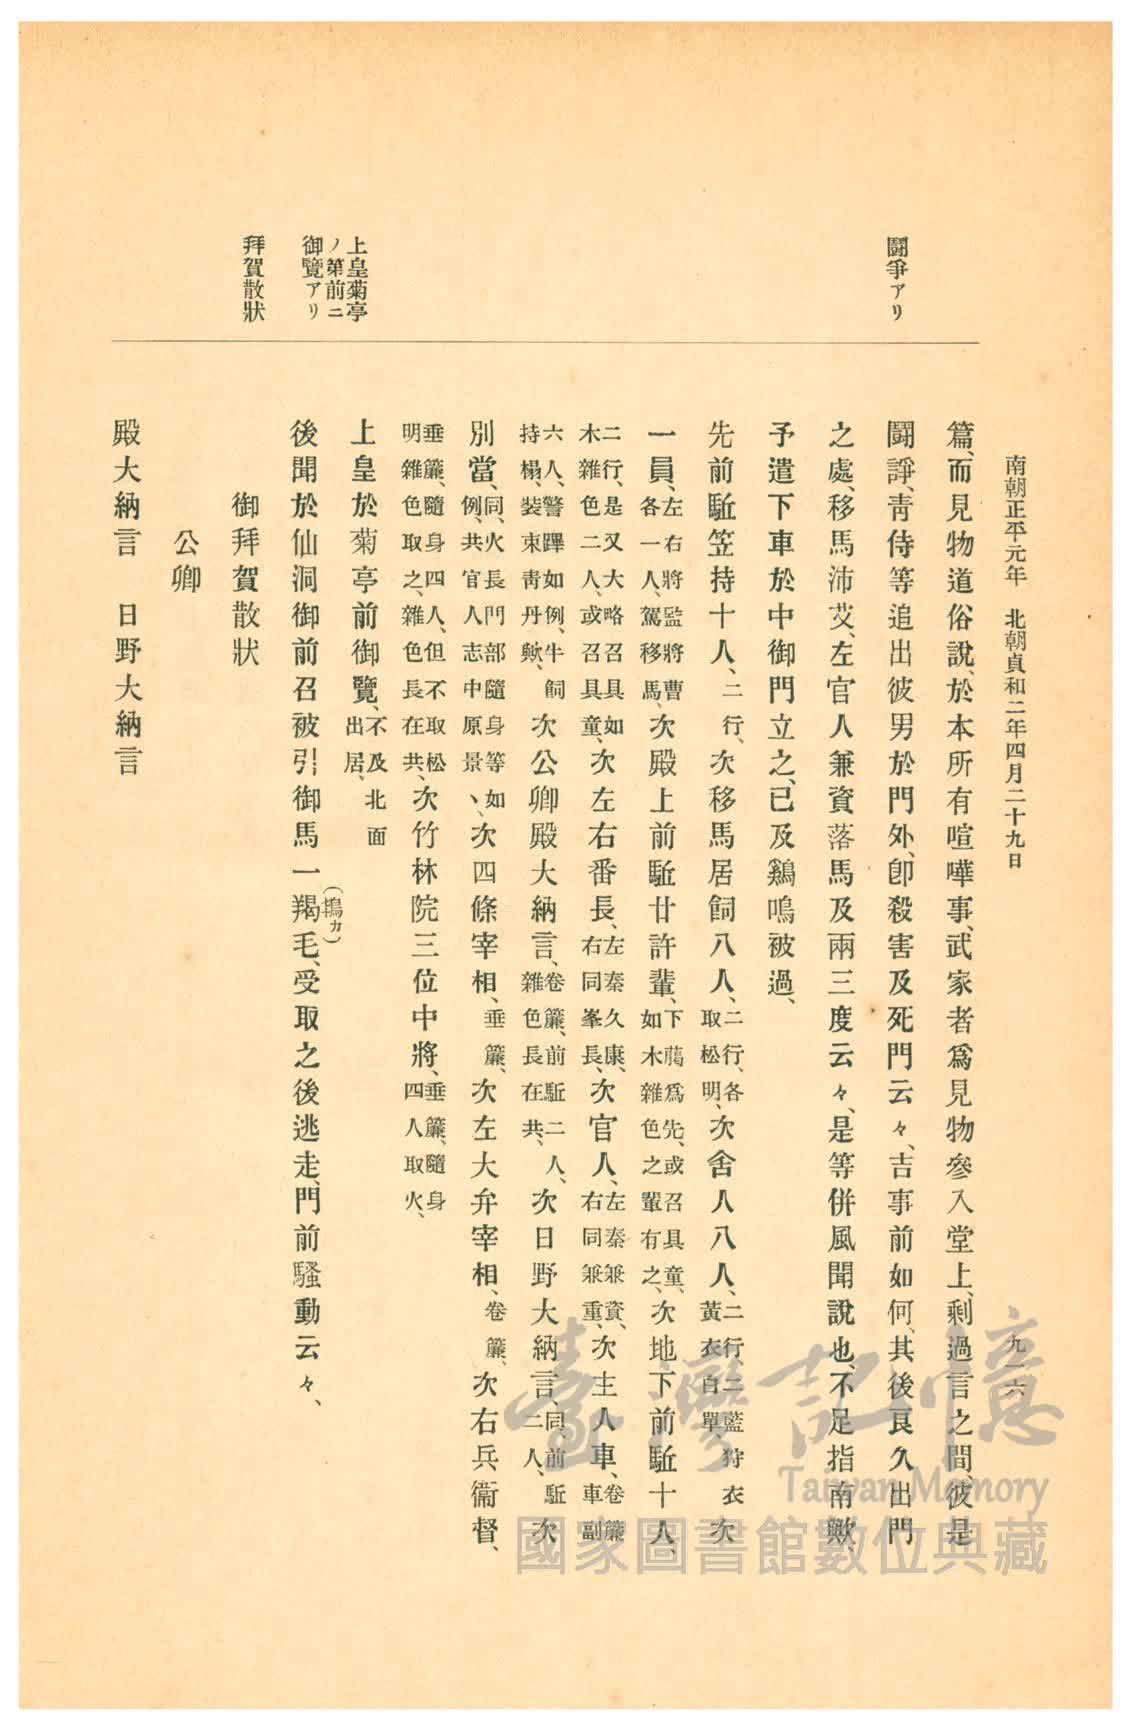 南朝正平元年 北朝貞和二年四月二十九日
九一六
鬪爭アリ
上皇菊亭
ノ第前ニ
御覽アリ
拜賀散狀
篇、而見物道俗說、於本所有喧嘩事、武家者爲見物參入堂上、剩過言之間、彼是
鬪諍、靑侍等追出彼男於門外、卽殺害及死門云々、吉事前如何、其後良久出門
之處、移馬沛艾、左官人兼資落馬及兩三度云々、是等併風聞說也、不足指南歟、
予遣下車於中御門立之、已及鷄鳴被過、
先前駈笠持十人、二行、次移馬居飼八人、二行、各取松明、次舍人八人、二行、二藍狩衣黃衣白單、次
一員、左右將監將曹各一人、駕移馬、次殿上前駈廿許輩、下﨟爲先、或召具童、如木雜色之輩有之、次地下前駈十人、
二行、是又大略召具如木雜色二人、或召具童、次左右番長、左秦久康、右同峯長、次官人、左秦兼資、右同兼重、次主人車、卷簾車副
六人、警蹕如例、牛飼持榻、裝束靑丹歟、次公卿殿大納言、卷簾、前駈二人、雜色長在共、次日野大納言、同、前駈二人、次
別當、同、火長門部隨身等如例、共官人志中原景、、次四條宰相、垂簾、次左大弁宰相、卷簾、次右兵衞督、
垂簾、隨身四人、但不取松明、雜色取之、雜色長在共、次竹林院三位中將、垂簾、隨身四人取火、
上皇於菊亭前御覽、不及北面出居、
後聞於仙洞御前召被引御馬一羯(搗カ)毛、受取之後逃走、門前騷動云々、
御拜賀散狀
公卿
殿大納言 日野大納言
臺灣記憶
Taiwan Memory
國家圖書館數位典藏